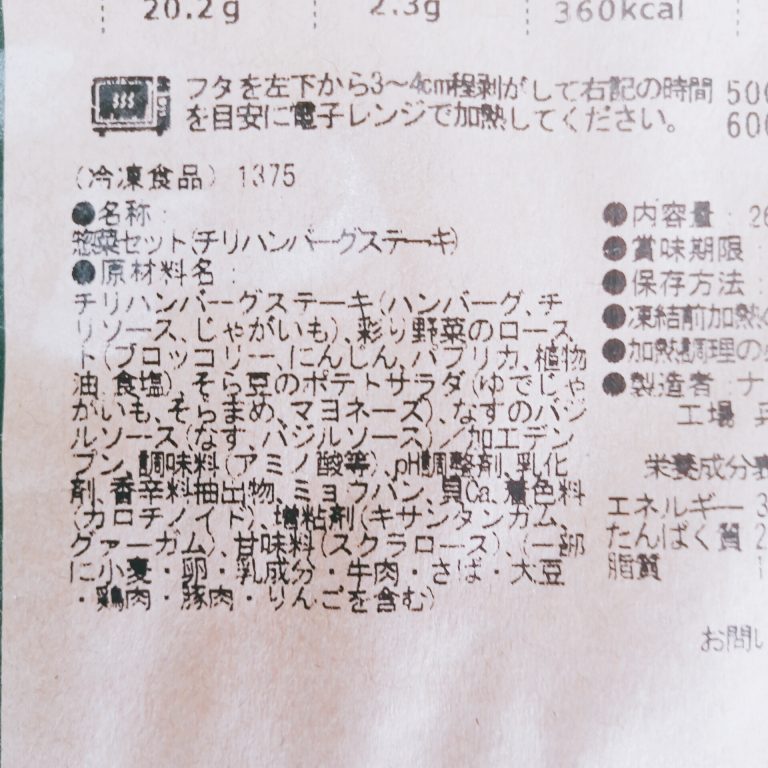 20.2g 2.3g 360kcal
フタを左下から3〜4cm程剥がして右記の時間
を目安に電子レンジで加熱してください。
(冷凍食品) 1375
●名称:
惣菜セット(チリハンバーグステーキ)
●原材料名:
チリハンバーグステーキ(ハンバーグ、チ
リソース、じゃがいも)、彩り野菜のロース
ト(ブロッコリー、にんじん、パプリカ、植物
油、食塩)、そら豆のポテトサラダ(ゆでじゃ
がいも、そらまめ、マヨネーズ)、なすのバジ
ルソース(なす、バジルソース)/加工デン
プン、調味料(アミノ酸等)、pH調整剤、乳化
剤、香辛料抽出物、ミョウバン、貝Ca、着色料
(カロチノイド)、増粘剤(キサンタンガム、
グァーガム)、甘味料(スクラロース)、(一部
に小麦・卵・乳成分・牛肉・さば・大豆
・鶏肉・豚肉・りんごを含む)
●内容量:
●賞味期限:
●保存方法:
●凍結前加熱
●加熱調理の
●製造者:ナ
工場
栄養成分
エネルギー
たんぱく質
脂質
お問い